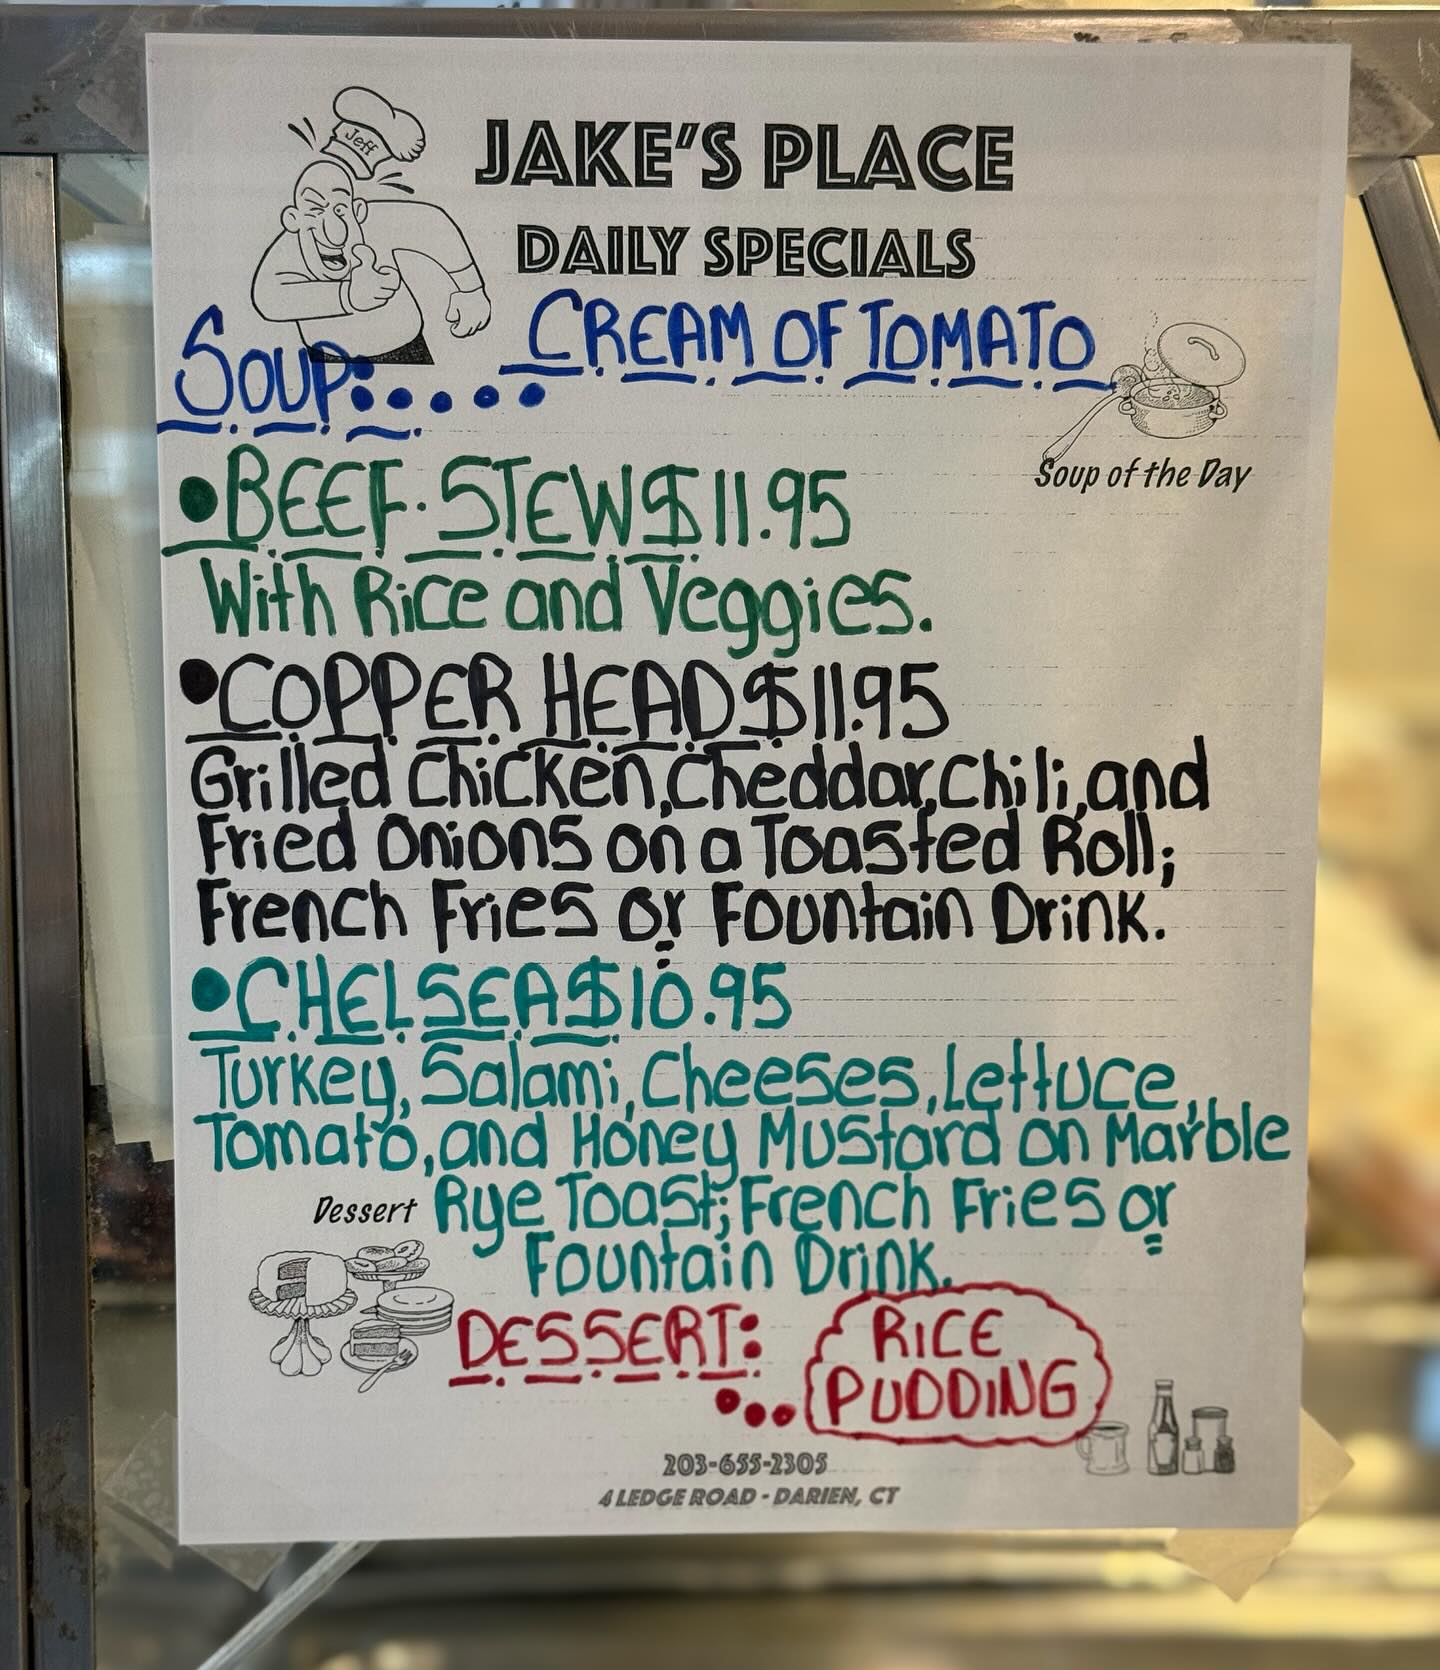 Jeff
JAKE'S PLACE
DAILY SPECIALS
SOUP:..... CREAM OF TOMATO
Soup of the Day
•BEEF·STEW $11.95
With Rice and Veggies.
•COPPER HEAD $11.95
Grilled Chicken, Cheddar, Chili, and
Fried Onions on a Toasted Roll;
French Fries or Fountain Drink.
•CHELSEA $10.95
Turkey, Salami, Cheeses, Lettuce,
Tomato, and Honey Mustard on Marble
Dessert Rye Toast; French Fries or
Fountain Drink.
DESSERT: ... RICE
PUDDING
203-655-2305
4 LEDGE ROAD - DARIEN, CT